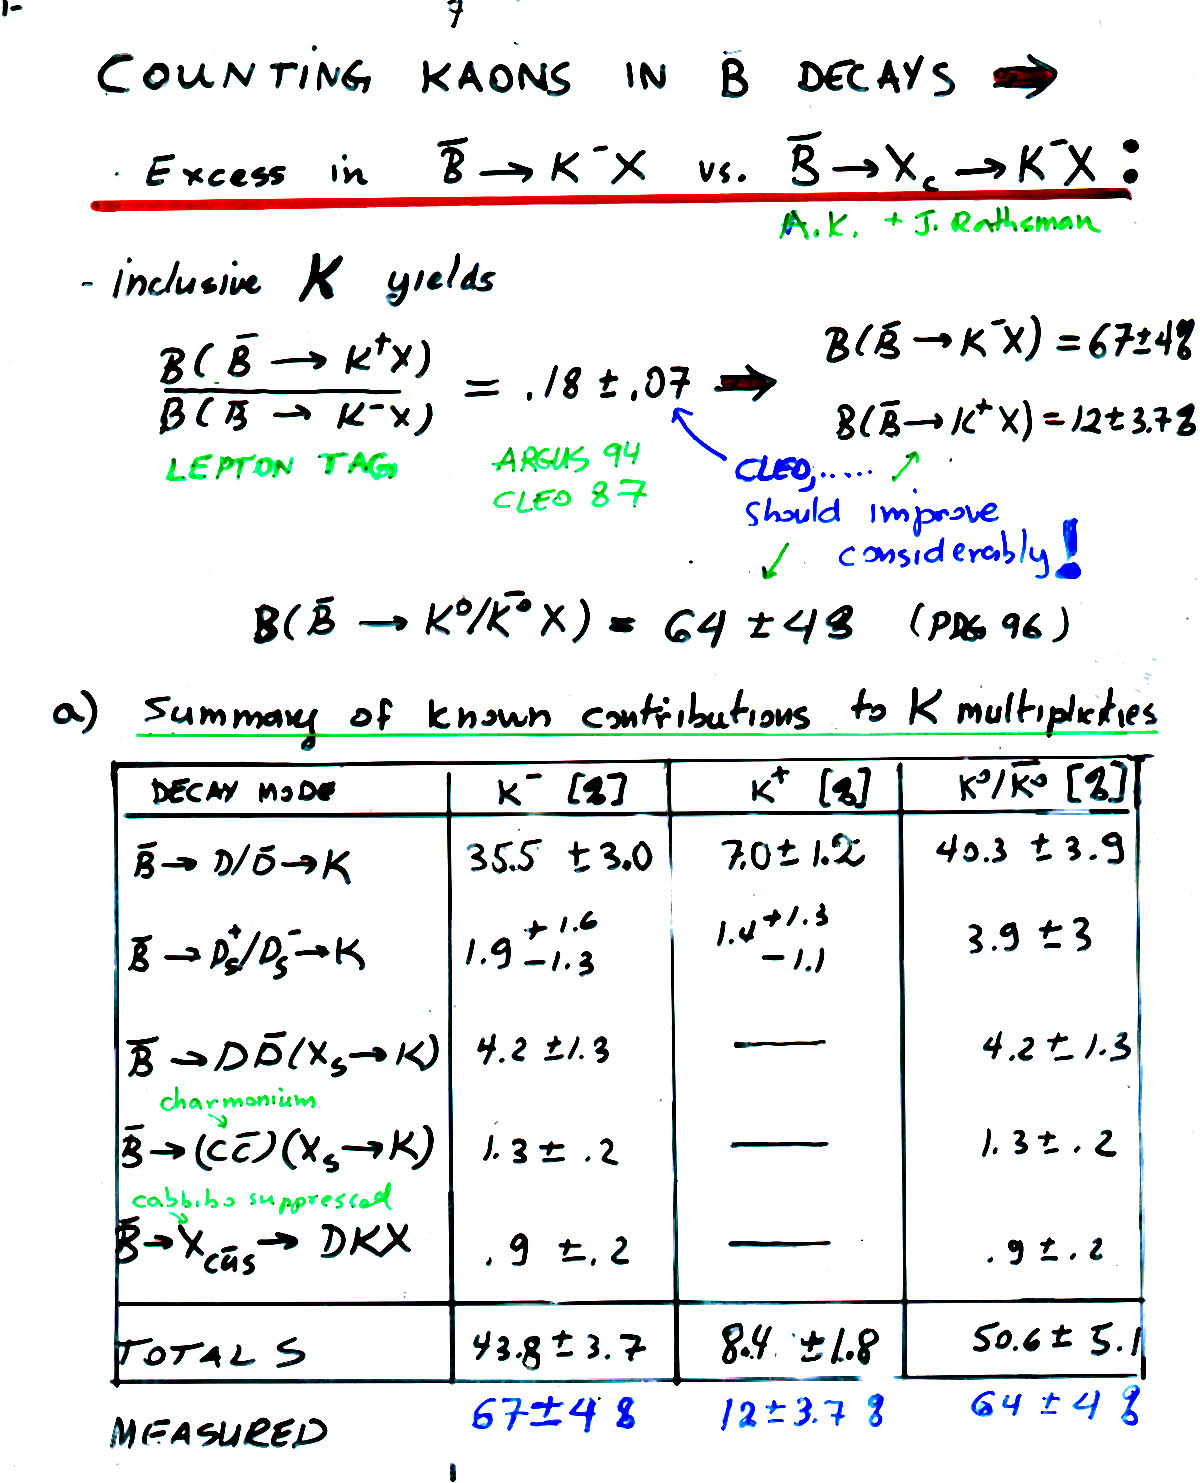 7
COUNTING KAONS IN B̄ DECAYS ➡
· Excess in B̄ → K⁻X vs. B̄ → X_c → K⁻X :
A.K. + J. Rathsman
- inclusive K yields
B(B̄ → K⁺X) / B(B̄ → K⁻X) = .18 ± .07 ➡
B(B̄ → K⁻X) = 67±4%
B(B̄ → K⁺X) = 12±3.7%
LEPTON TAG
ARGUS 94
CLEO 87
CLEO, .....
should improve
considerably!
B(B̄ → K⁰/K̄⁰ X) = 64 ± 4% (PDG 96)
a) Summary of known contributions to K multiplicities
DECAY MODE K⁻ [%] K⁺ [%] K⁰/K̄⁰ [%]
B̄ → D/D̄ → K 35.5 ± 3.0 7.0 ± 1.2 40.3 ± 3.9
B̄ → D_s⁺/D_s⁻ → K 1.9 +1.6 −1.3 1.4 +1.3 −1.1 3.9 ± 3
B̄ → D D̄ (X_s → K) 4.2 ± 1.3 — 4.2 ± 1.3
charmonium
B̄ → (c c̄)(X_s → K) 1.3 ± .2 — 1.3 ± .2
cabbibo suppressed
B̄ → X_cūs → DKX .9 ± .2 — .9 ± .2
TOTAL S 43.8 ± 3.7 8.4 ± 1.8 50.6 ± 5.1
MEASURED 67±4% 12±3.7% 64 ± 4%